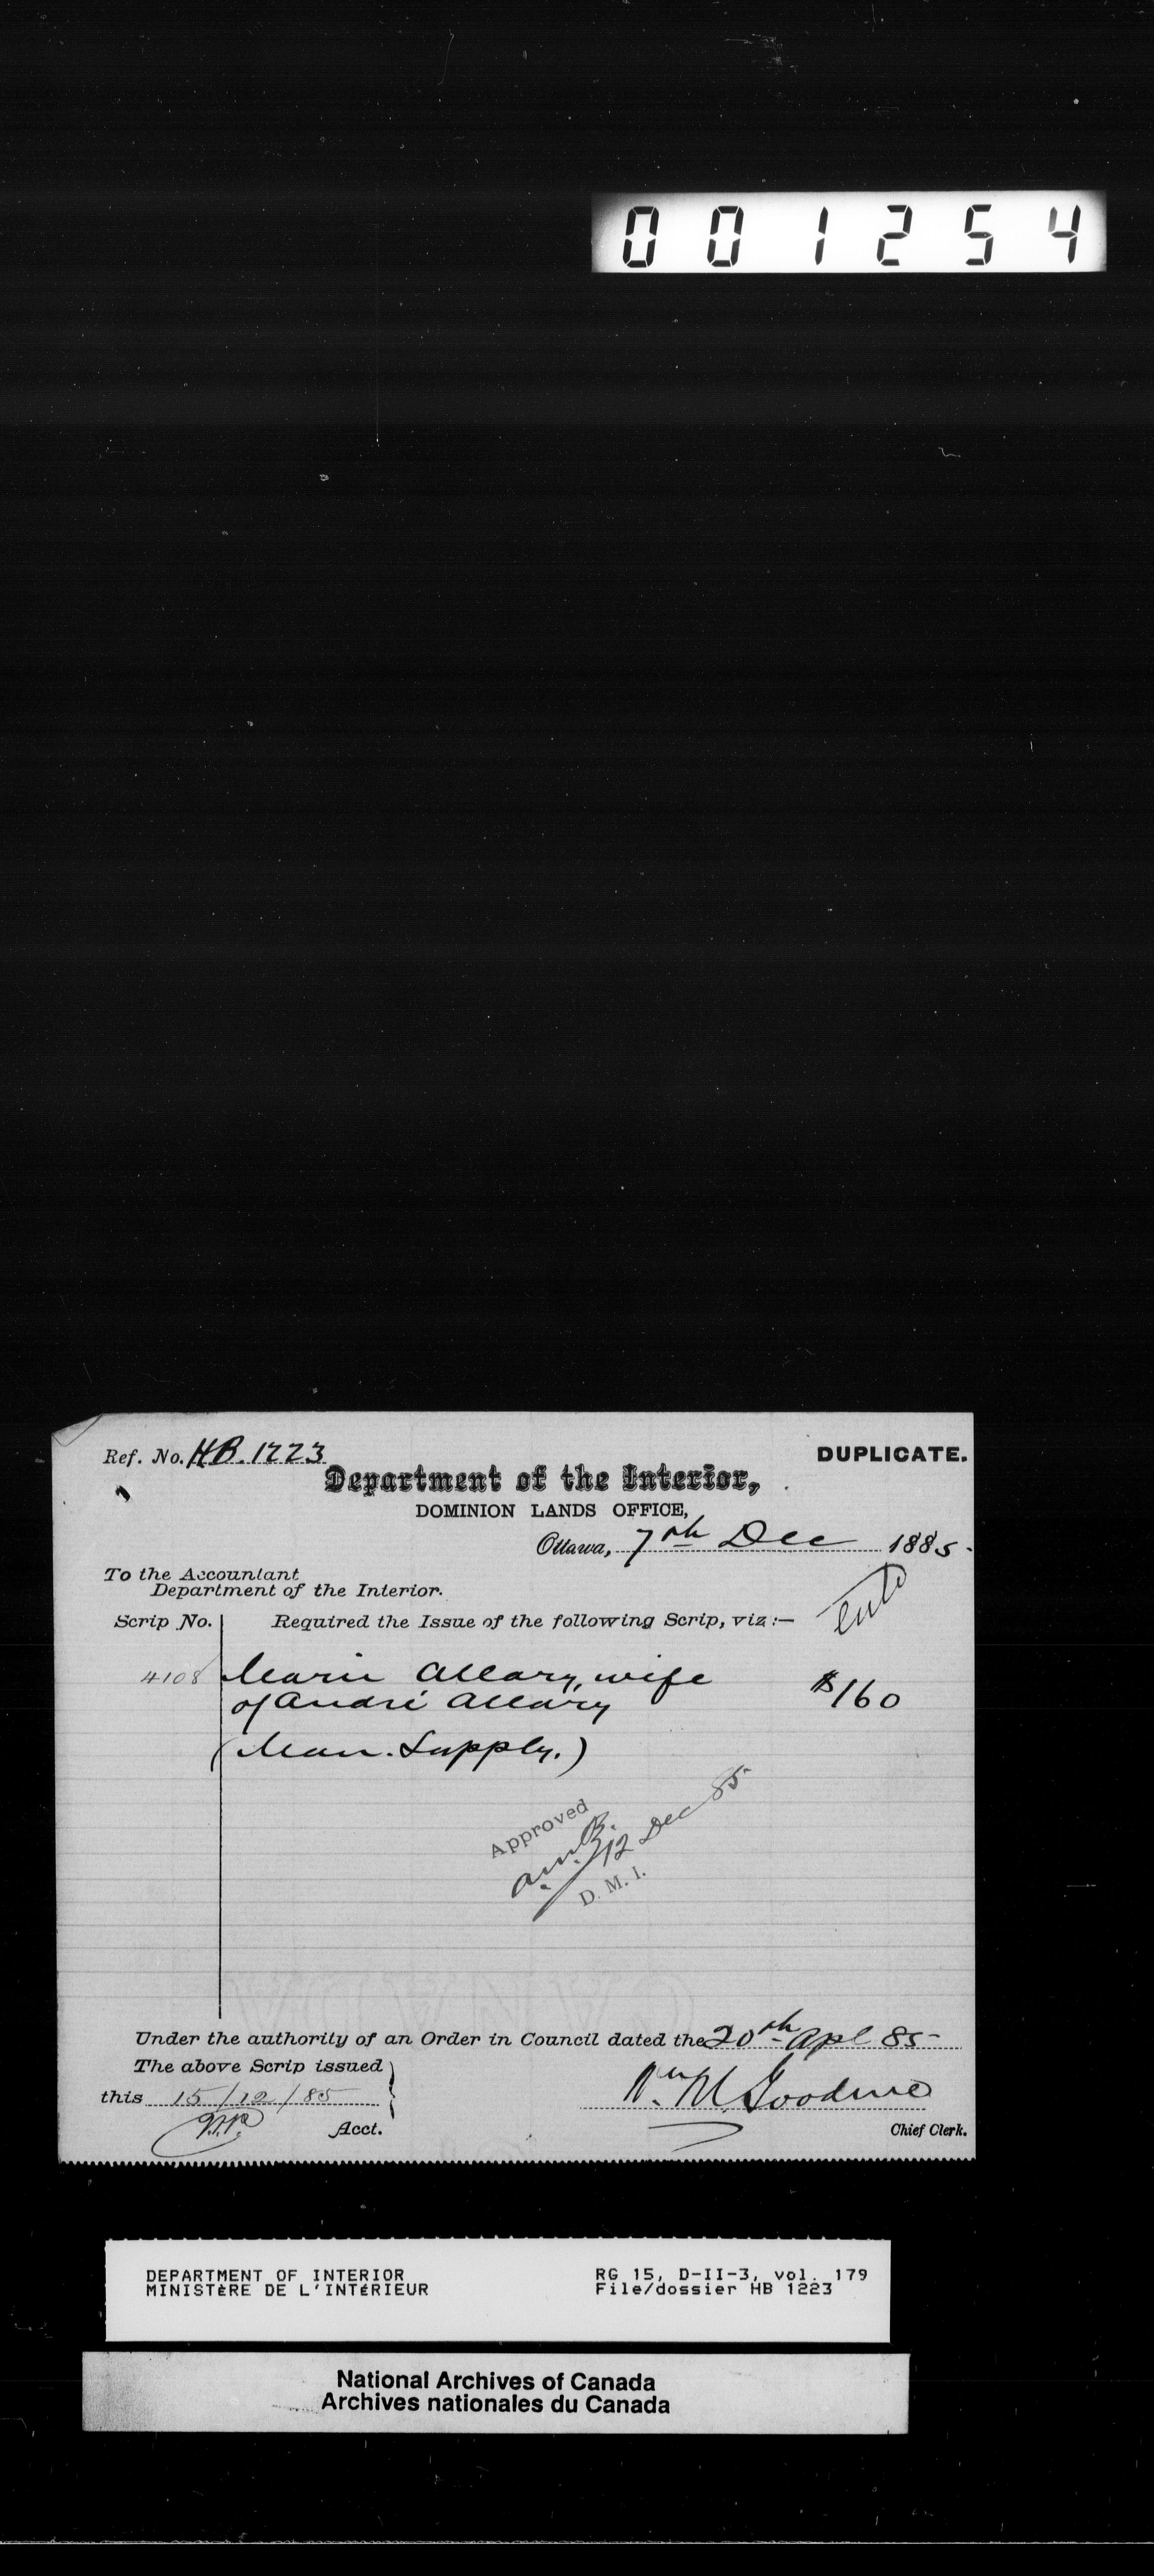 001254
Ref. No. HB. 1223
DUPLICATE.
Department of the Interior,
DOMINION LANDS OFFICE,
Ottawa, 7th Dec 1885.
To the Accountant
Department of the Interior.
Scrip No. Required the Issue of the following Scrip, viz:—
4108 Marie Allary, wife
of André Allary $160
(Man. Supply.)
Approved
A.M.B. 12 Dec 85
D. M. I.
CANADA
Under the authority of an Order in Council dated the 20th Apl 85
The above Scrip issued
this 15/12/85
Wm M. Goodeve
Acct.
Chief Clerk.
DEPARTMENT OF INTERIOR
MINISTÈRE DE L'INTÉRIEUR
RG 15, D-II-3, vol. 179
File/dossier HB 1223
National Archives of Canada
Archives nationales du Canada